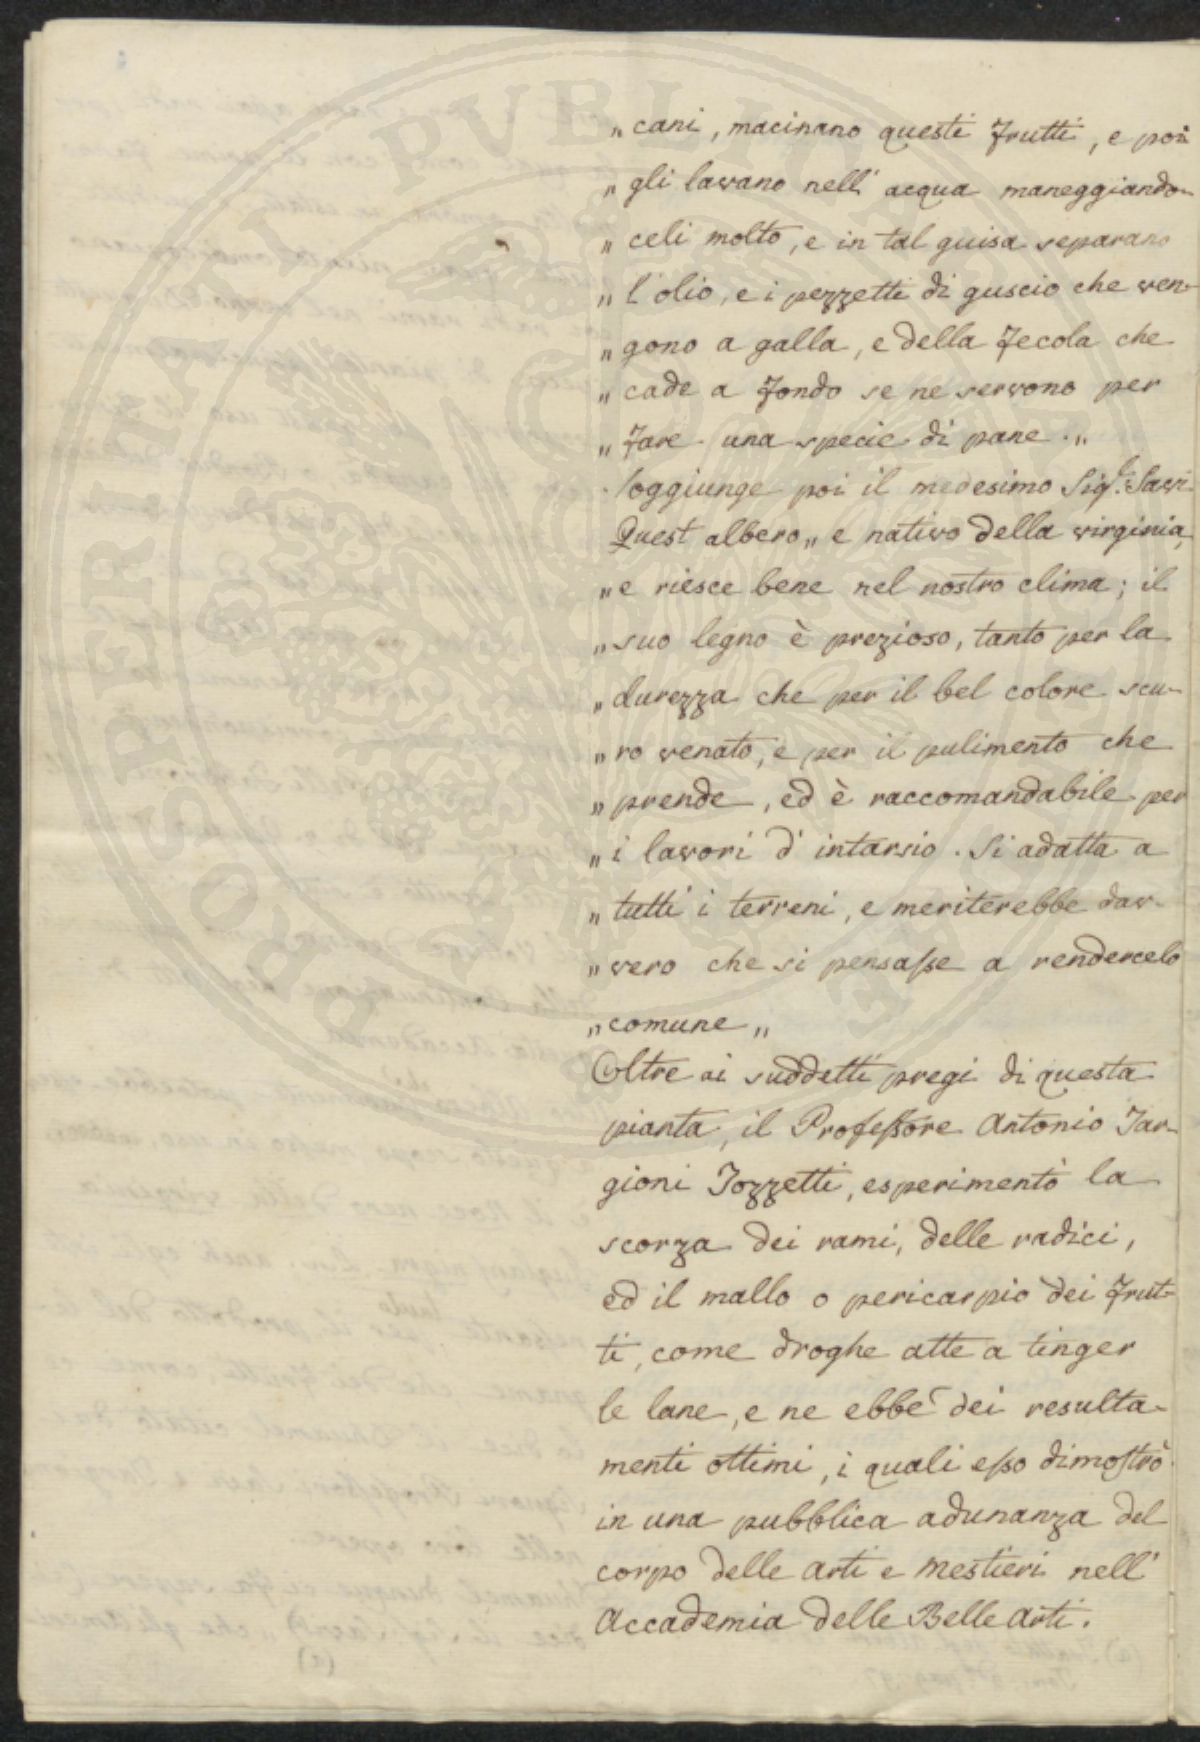 „ cani, macinano questi frutti, e poi
„ gli lavano nell' acqua maneggiando-
„ celi molto, e in tal guisa separano
„ l'olio, e i pezzetti di guscio che ven-
„ gono a galla, e della fecola che
„ cade a fondo se ne servono per
„ fare una specie di pane „
Soggiunge poi il medesimo Sig.r Savi
Quest albero „ e nativo della virginia,
„ e riesce bene nel nostro clima; il
„ suo legno è prezioso, tanto per la
„ durezza che per il bel colore scu-
„ ro venato, e per il pulimento che
„ prende, ed è raccomandabile per
„ i lavori d' intarsio. Si adatta a
„ tutti i terreni, e meriterebbe dav-
„ vero che si pensasse a rendercelo
„ comune „
Oltre ai suddetti pregi di questa
pianta, il Professore Antonio Tar-
gioni Tozzetti, esperimentò la
scorza dei rami, delle radici,
ed il mallo o pericarpio dei frut-
ti, come droghe atte a tinger
le lane, e ne ebbe dei resulta-
menti ottimi, i quali esso dimostrò
in una pubblica adunanza del
corpo delle arti e mestieri nell'
Accademia delle Belle Arti.
PROSPERINATI PVBLICAE